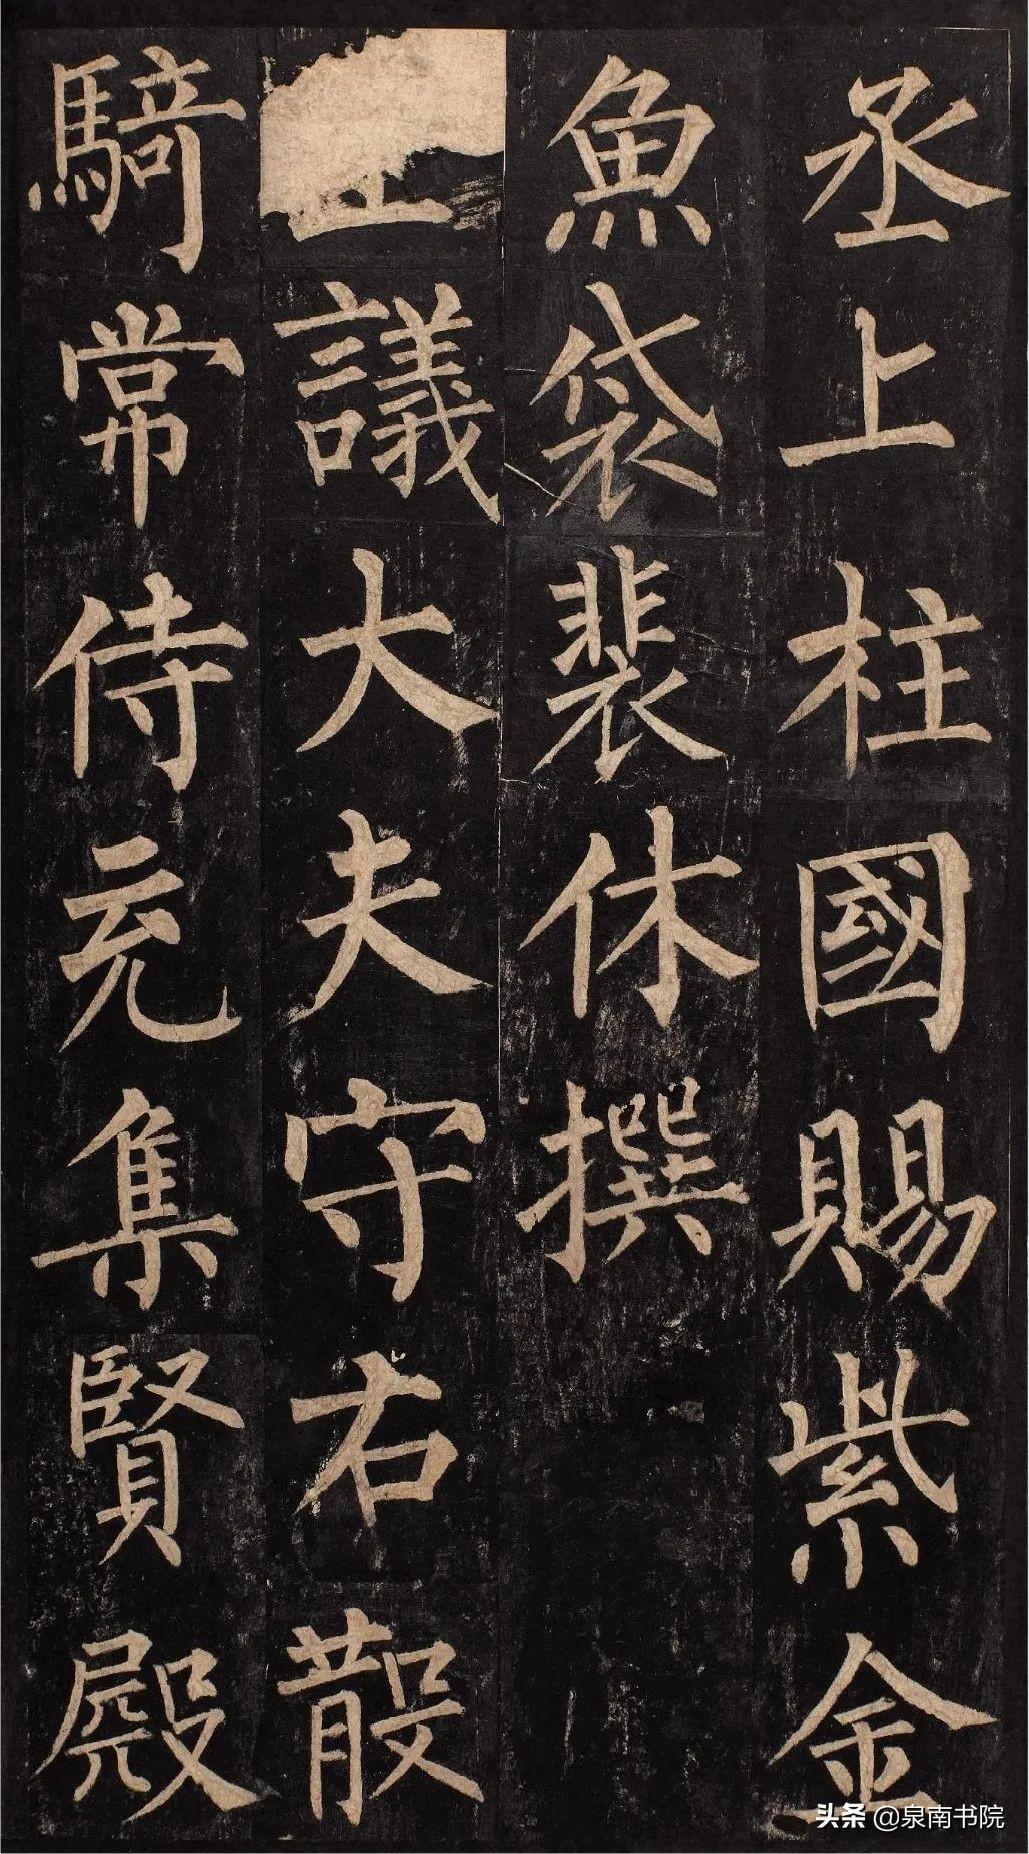 丞上柱國賜紫金
魚袋裴休撰
議大夫守右散
騎常侍充集賢殿
头条 @泉南书院